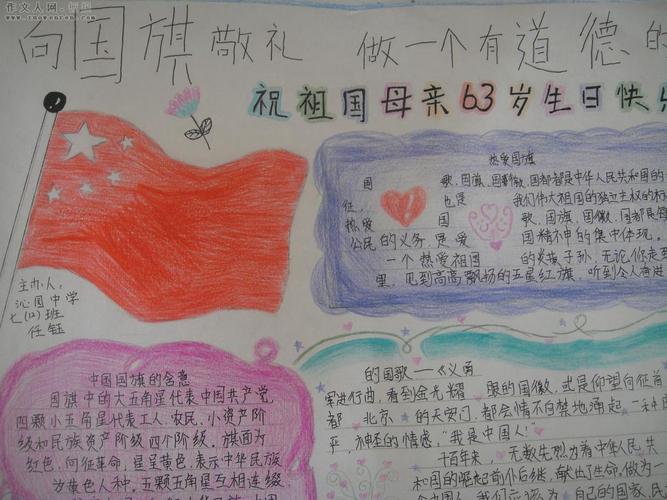 作文人网
www.zuowenren.com
向国旗敬礼 做一个有道德的
祝祖国母亲63岁生日快
热爱国旗
国歌、国旗、国徽、国都都是中华人民共和国的
征,也是我们伟大祖国的独立主权的标
热爱国歌、国旗、国徽、国都是
公民的义务,是爱国精神的集中体现。
一个热爱祖国的炎孩子孙,无论你走到
里,见到高高飘扬的五星红旗,听到令人奋进
主办人:
沁园中学
七(12)班
任钰
中国国旗的含意
国旗中的大五角星代表中国共产党,
四颗小五角星代表工人、农民、小资产阶
级和民族资产阶级四个阶级。旗面为
红色,向征革命,星呈黄色,表示中华民族
为黄色人种。五颗五角星互相连缀
的国歌——《义勇
军进行曲,看到金光耀眼的国徽,或是仰望向征着
都北京的天安门,都会情不自禁地涌起一种
严,神圣的情感,“我是中国人!”
一百年来,无数先烈为着中华人民共
和国的崛起前仆后继,献出了生命。做为一